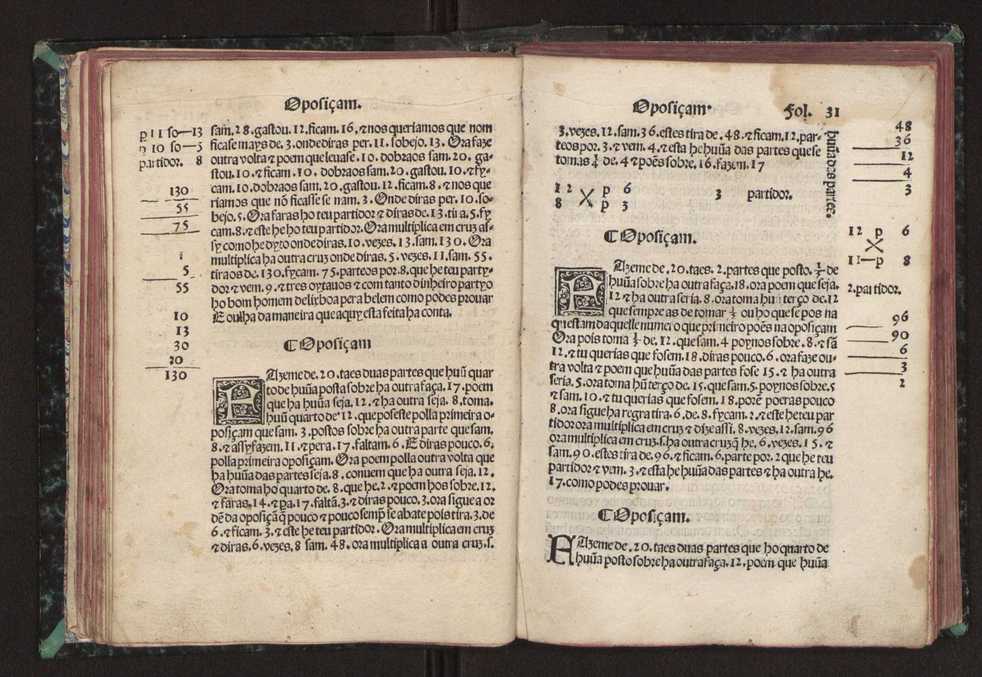 Oposiçam.
p 11 so—13
p 10 so—5
partidor. 8
130
55
75
1
5
55
10
13
30
10
130
sam. 28. gastou. 12. ficam. 16. ⁊ nos queriamos que nom
ficase mays de. 3. onde diras per. 11. sobejo. 13. Ora faze
outra volta ⁊ poem que leuase. 10. dobraos sam. 20. ga-
stou. 10 ⁊ ficam. 10. dobraos sam. 20. gastou. 10. ⁊ fy-
cam. 10. dobraos sam. 20. gastou. 12. ficam. 8. ⁊ nos que
riamos que nõ ficasse se nam. 3. Onde diras per. 10. so-
bejo. 5. Ora faras ho teu partidor ⁊ diras de. 13. tira. 5. fy
cam. 8. ⁊ este he ho teu partidor. Ora multiplica em cruz as-
sy como he dyto onde diras. 10. vezes. 13. sam. 130. Ora
multiplica ha outra cruz onde diras. 5. vezes. 11. sam. 55.
tira os de. 130. fycam. 75. parte os por. 8. que he teu party-
dor ⁊ vem. 9. ⁊ tres oytauos ⁊ com tanto dinheiro partyo
ho bom homem de lixboa pera belem como podes prouar
E oulha da maneira que aquy esta feita ha conta.
¶ Oposiçam
FAzeme de. 20. taes duas partes que huũ quar
to de huũa posta sobre ha outra faça. 17. poem
que ha huũa seja. 12. ⁊ ha outra seja. 8. toma.
huũ quarto de. 12. que poseste polla primeira o-
posiçam que sam. 3. postos sobre ha outra parte que sam.
8. ⁊ assy fazem. 11. ⁊ pera. 17. faltam. 6. E diras pouco. 6.
polla primeira oposiçam. Ora poem polla outra volta que
ha huũa das partes seja. 8. conuem que ha outra seja. 12.
Ora toma ho quarto de. 8. que he. 2. ⁊ poem hos sobre. 12.
⁊ faras. 14. ⁊ pa. 17. faltã. 3. ⁊ diras pouco. 3. ora sigue a or
dẽ da oposiçã q̃ pouco ⁊ pouco semp̃ se abate pois tira. 3. de
6. ⁊ ficam. 3. ⁊ este he teu partidor. Ora multiplica em cruz
⁊ diras. 6. vezes. 8 sam. 48. ora multiplica a outra cruz. s.
Oposiçam. Fol. 31
3. vezes. 12. sam. 36. estes tira de. 48. ⁊ ficam. 12. par-
te os por. 3. ⁊ vem. 4. ⁊ esta he huũa das partes que se
tomas ¼ de. 4 ⁊ poẽs sobre. 16. fazem. 17
huũa das partes.
48
36
12
4
3
12 p 6
8 p 3
3 partidor.
¶ Oposiçam.
12 p 6
11—p 8
2. partidor.
96
90
6
3
2
FAzeme de. 20. taes. 2. partes que posto. ⅓ de
huũa sobre ha outra faça. 18. ora poem que seja.
12 ⁊ ha outra seria. 8. ora toma huũ terço de. 12
que sempre as de tomar ⅓ ou ho que se pos na
questam daquelle numero que primeiro poẽs na oposiçam
Ora pois toma ⅓ de. 12. que sam. 4 poynos sobre. 8. ⁊ sã
12. ⁊ tu querias que fosem. 18. diras pouco. 6. ora faze ou-
tra volta ⁊ poem que huũa das partes fose 15. ⁊ ha outra
seria. 5. ora toma hũ terço de. 15. que sam. 5. poynos sobre. 5
⁊ sam. 10. ⁊ tu querias que fosem. 18. porẽ poeras pouco
8. ora sigue ha regra tira. 6. de. 8. fycam. 2. ⁊ este he teu par
tidor ora multiplica em cruz ⁊ dize assi. 8. vezes. 12. sam. 96
ora multiplica em cruz. s. ha outra cruz q̃ he. 6. vezes. 15. ⁊
sam. 90. estes tira de. 96. ⁊ ficam. 6. parte por. 2 que he teu
partidor ⁊ vem. 3. ⁊ esta he huũa das partes ⁊ ha outra he.
17. como podes prouar.
¶ Oposiçam.
FAzeme de. 20. taes duas partes que ho quarto de
huũa posto sobre ha outra faça. 12. poem que huũa